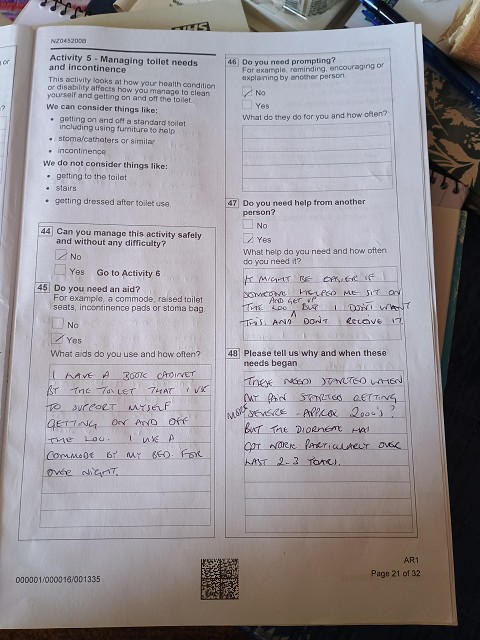 NZ045200B
Activity 5 - Managing toilet needs
and incontinence
This activity looks at how your health condition
or disability affects how you manage to clean
yourself and getting on and off the toilet.
We can consider things like:
• getting on and off a standard toilet
including using furniture to help
• stoma/catheters or similar
• incontinence
We do not consider things like:
• getting to the toilet
• stairs
• getting dressed after toilet use
44 Can you manage this activity safely
and without any difficulty?
No
Yes Go to Activity 6
45 Do you need an aid?
For example, a commode, raised toilet
seats, incontinence pads or stoma bag
No
Yes
What aids do you use and how often?
I HAVE A BOOK CABINET
BY THE TOILET THAT I USE
TO SUPPORT MYSELF
GETTING ON AND OFF
THE LOO. I USE A
COMMODE BY MY BED FOR
OVER NIGHT.
46 Do you need prompting?
For example, reminding, encouraging or
explaining by another person.
No
Yes
What do they do for you and how often?
47 Do you need help from another
person?
No
Yes
What help do you need and how often
do you need it?
IT MIGHT BE EASIER IF
SOMEONE HELPED ME SIT ON
AND GET UP
THE LOO BUT I DON'T WANT
THIS AND DON'T RECEIVE IT.
48 Please tell us why and when these
needs began
THESE NEEDS STARTED WHEN
MY PAIN STARTED GETTING
MORE SEVERE - APPROX 2000'S?
BUT THE HAS
GOT WORSE PARTICULARLY OVER
LAST 2-3 YEARS.
000001/000016/001335
AR1
Page 21 of 32